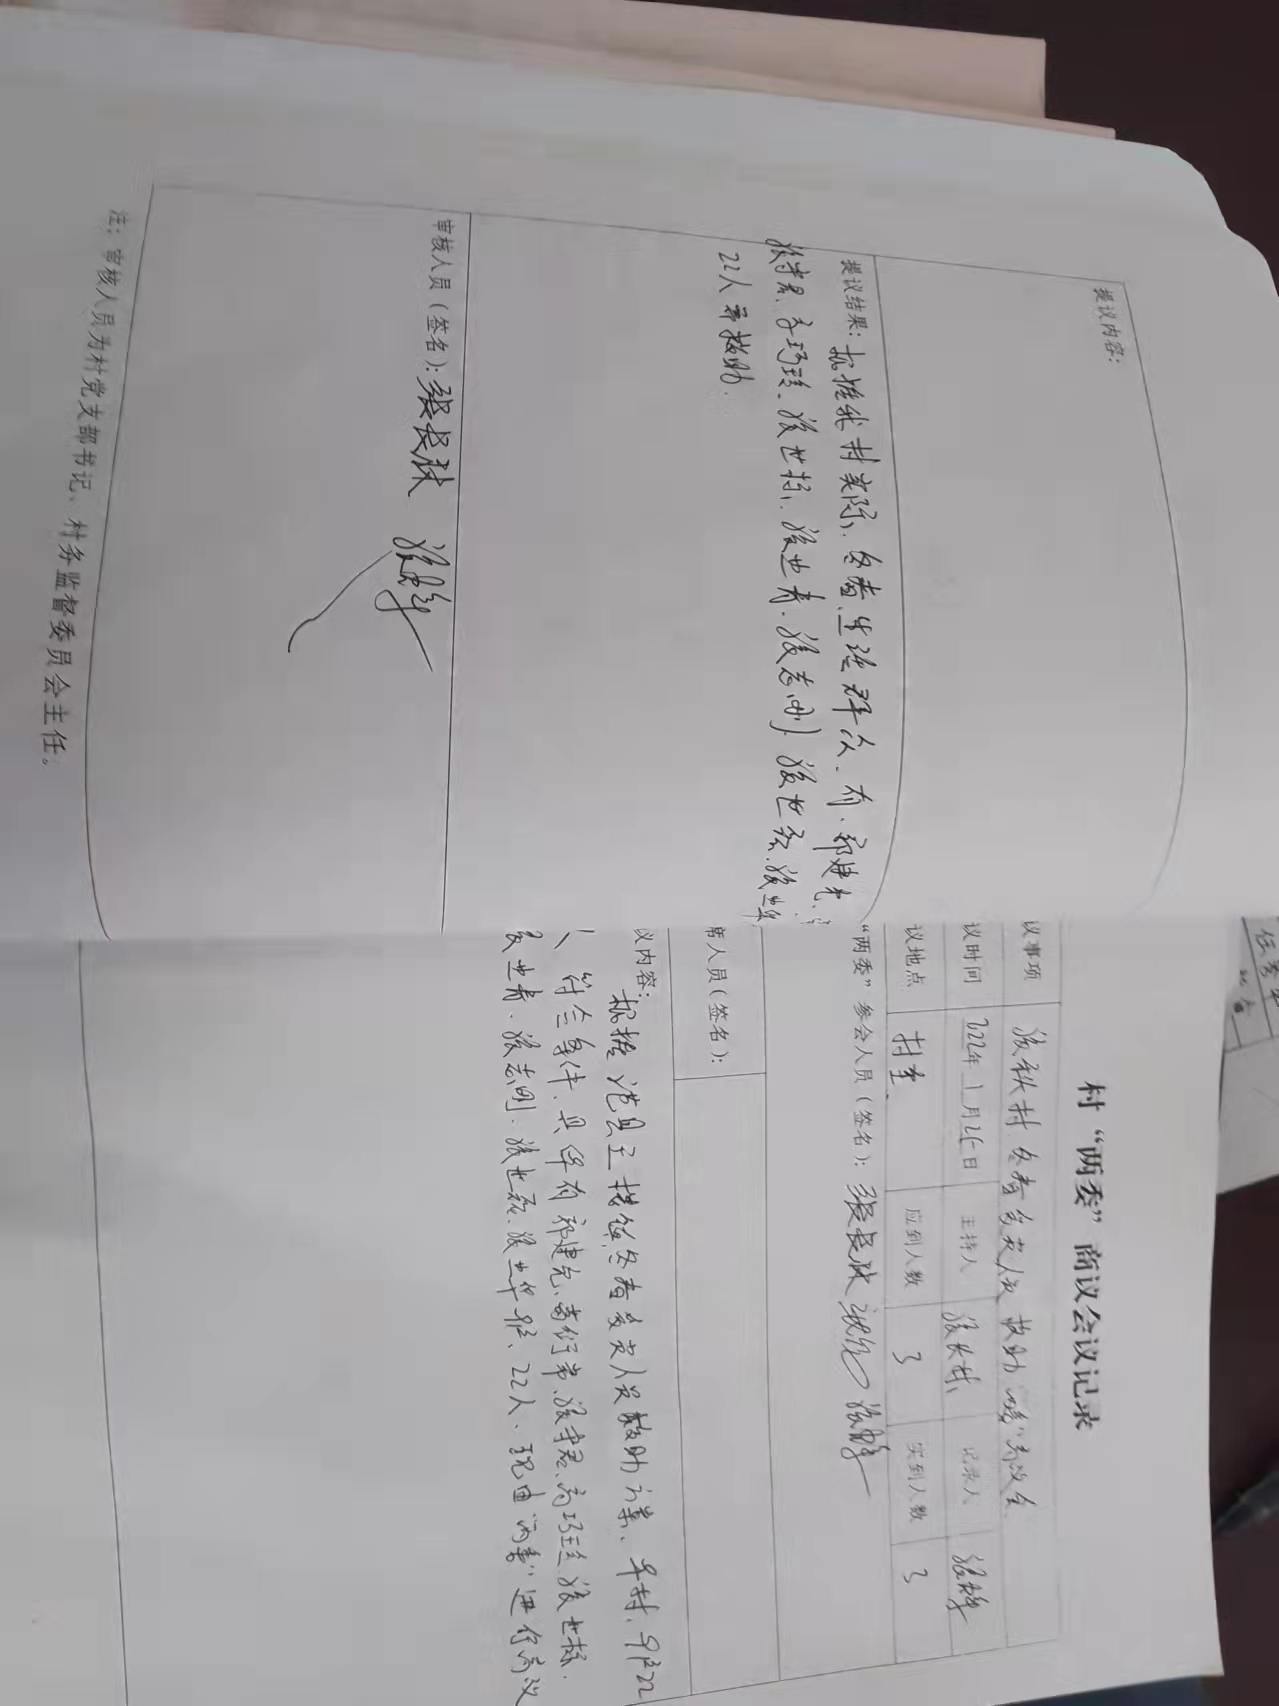 提议内容:
提议结果: 根据我村实际、冬春生活群众、有、郭建允、
张守君、高巧玲、张世标、张业青、张志刚、张世磊、张业华
22人需救助.
审核人员(签名): 张长林
注: 审核人员为村党支部书记、村务监督委员会主任。
村“两委”商议会议记录
议事项 张秋村冬春受灾人员救助“两委”商议会
议时间 2022年1月25日 主持人 张长林 记录人
议地点 村室 应到人数 3 实到人数 3
“两委”参会人员(签名): 张长林
席人员(签名):
议内容: 根据范县王楼镇冬春受灾人员救助方案、我村、9户22
人符合条件、具体有郭建允、张守君、高巧玲、张世标、
张业青、张志刚、张世磊、张业华9户、22人、现由“两委”进行商议